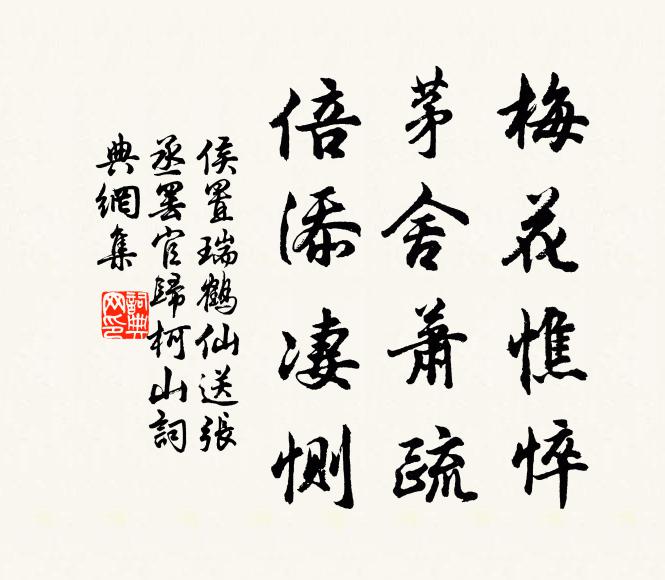 梅花憔悴
茅舍蕭疏
倍添凄惻
侯置瑞鶴仙送張
丞罷官歸柯山詞
典網集
詞典網印